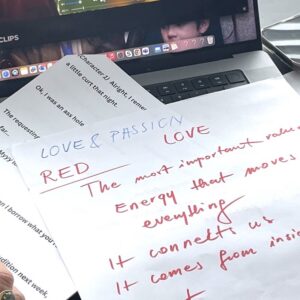 CLIPS
(Character J) Alright, I
a little curt that night.
Ok, I was an ass hole
The requesting
far.
can I borrow what you
audition next week,
LOVE & PASSION
RED LOVE
The most important value
Energy that moves
everything
It connects us
It comes from